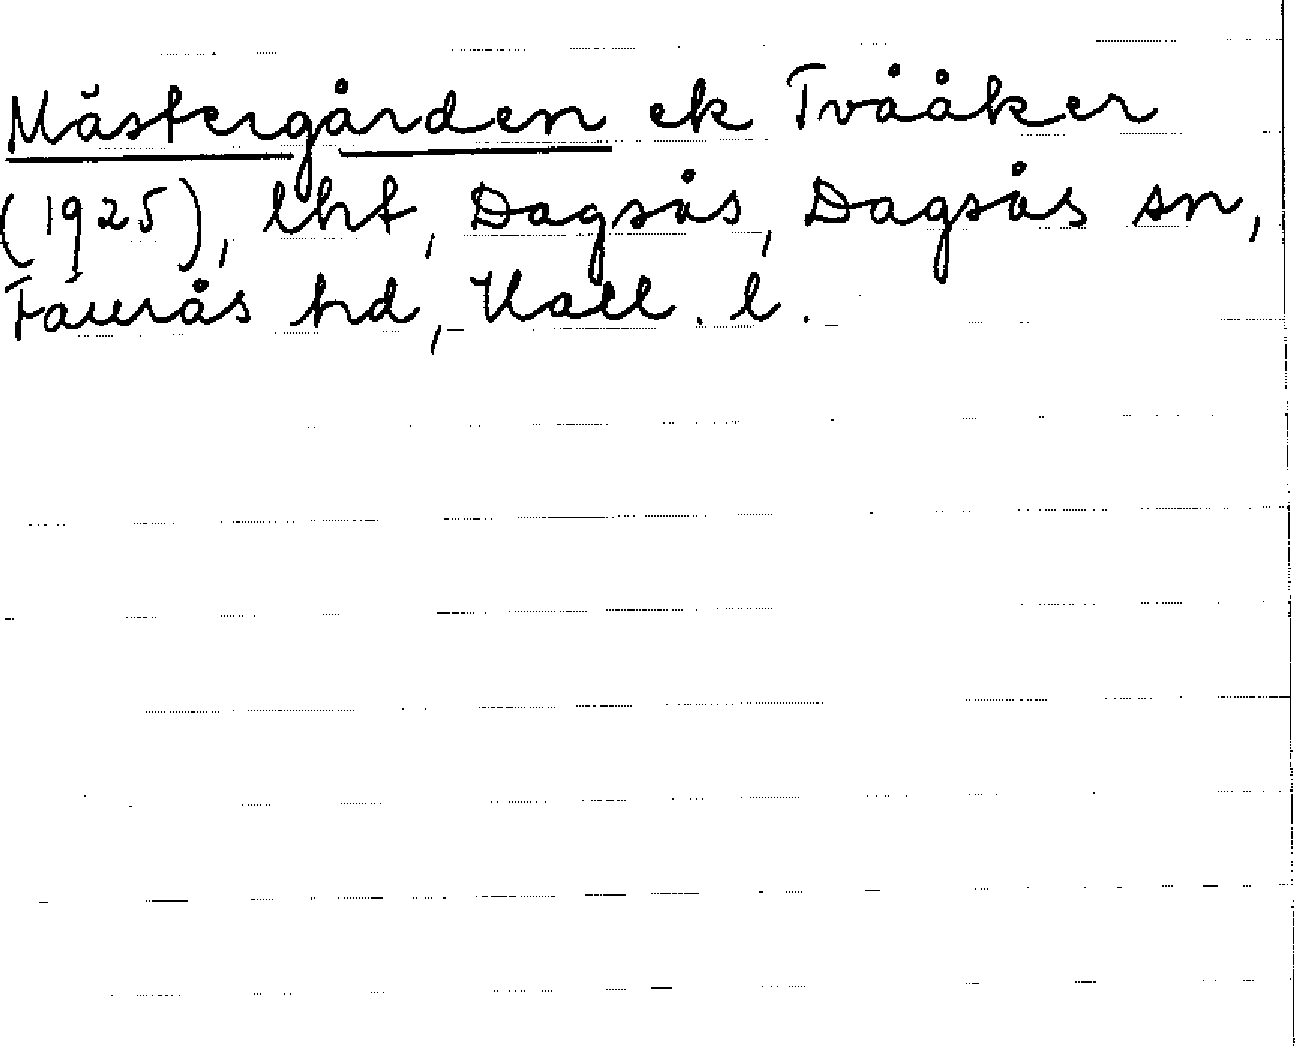 Mästergården ek Tvååker
(1925), lht, Dagsås, Dagsås sn,
Faurås hd, Hall. l.